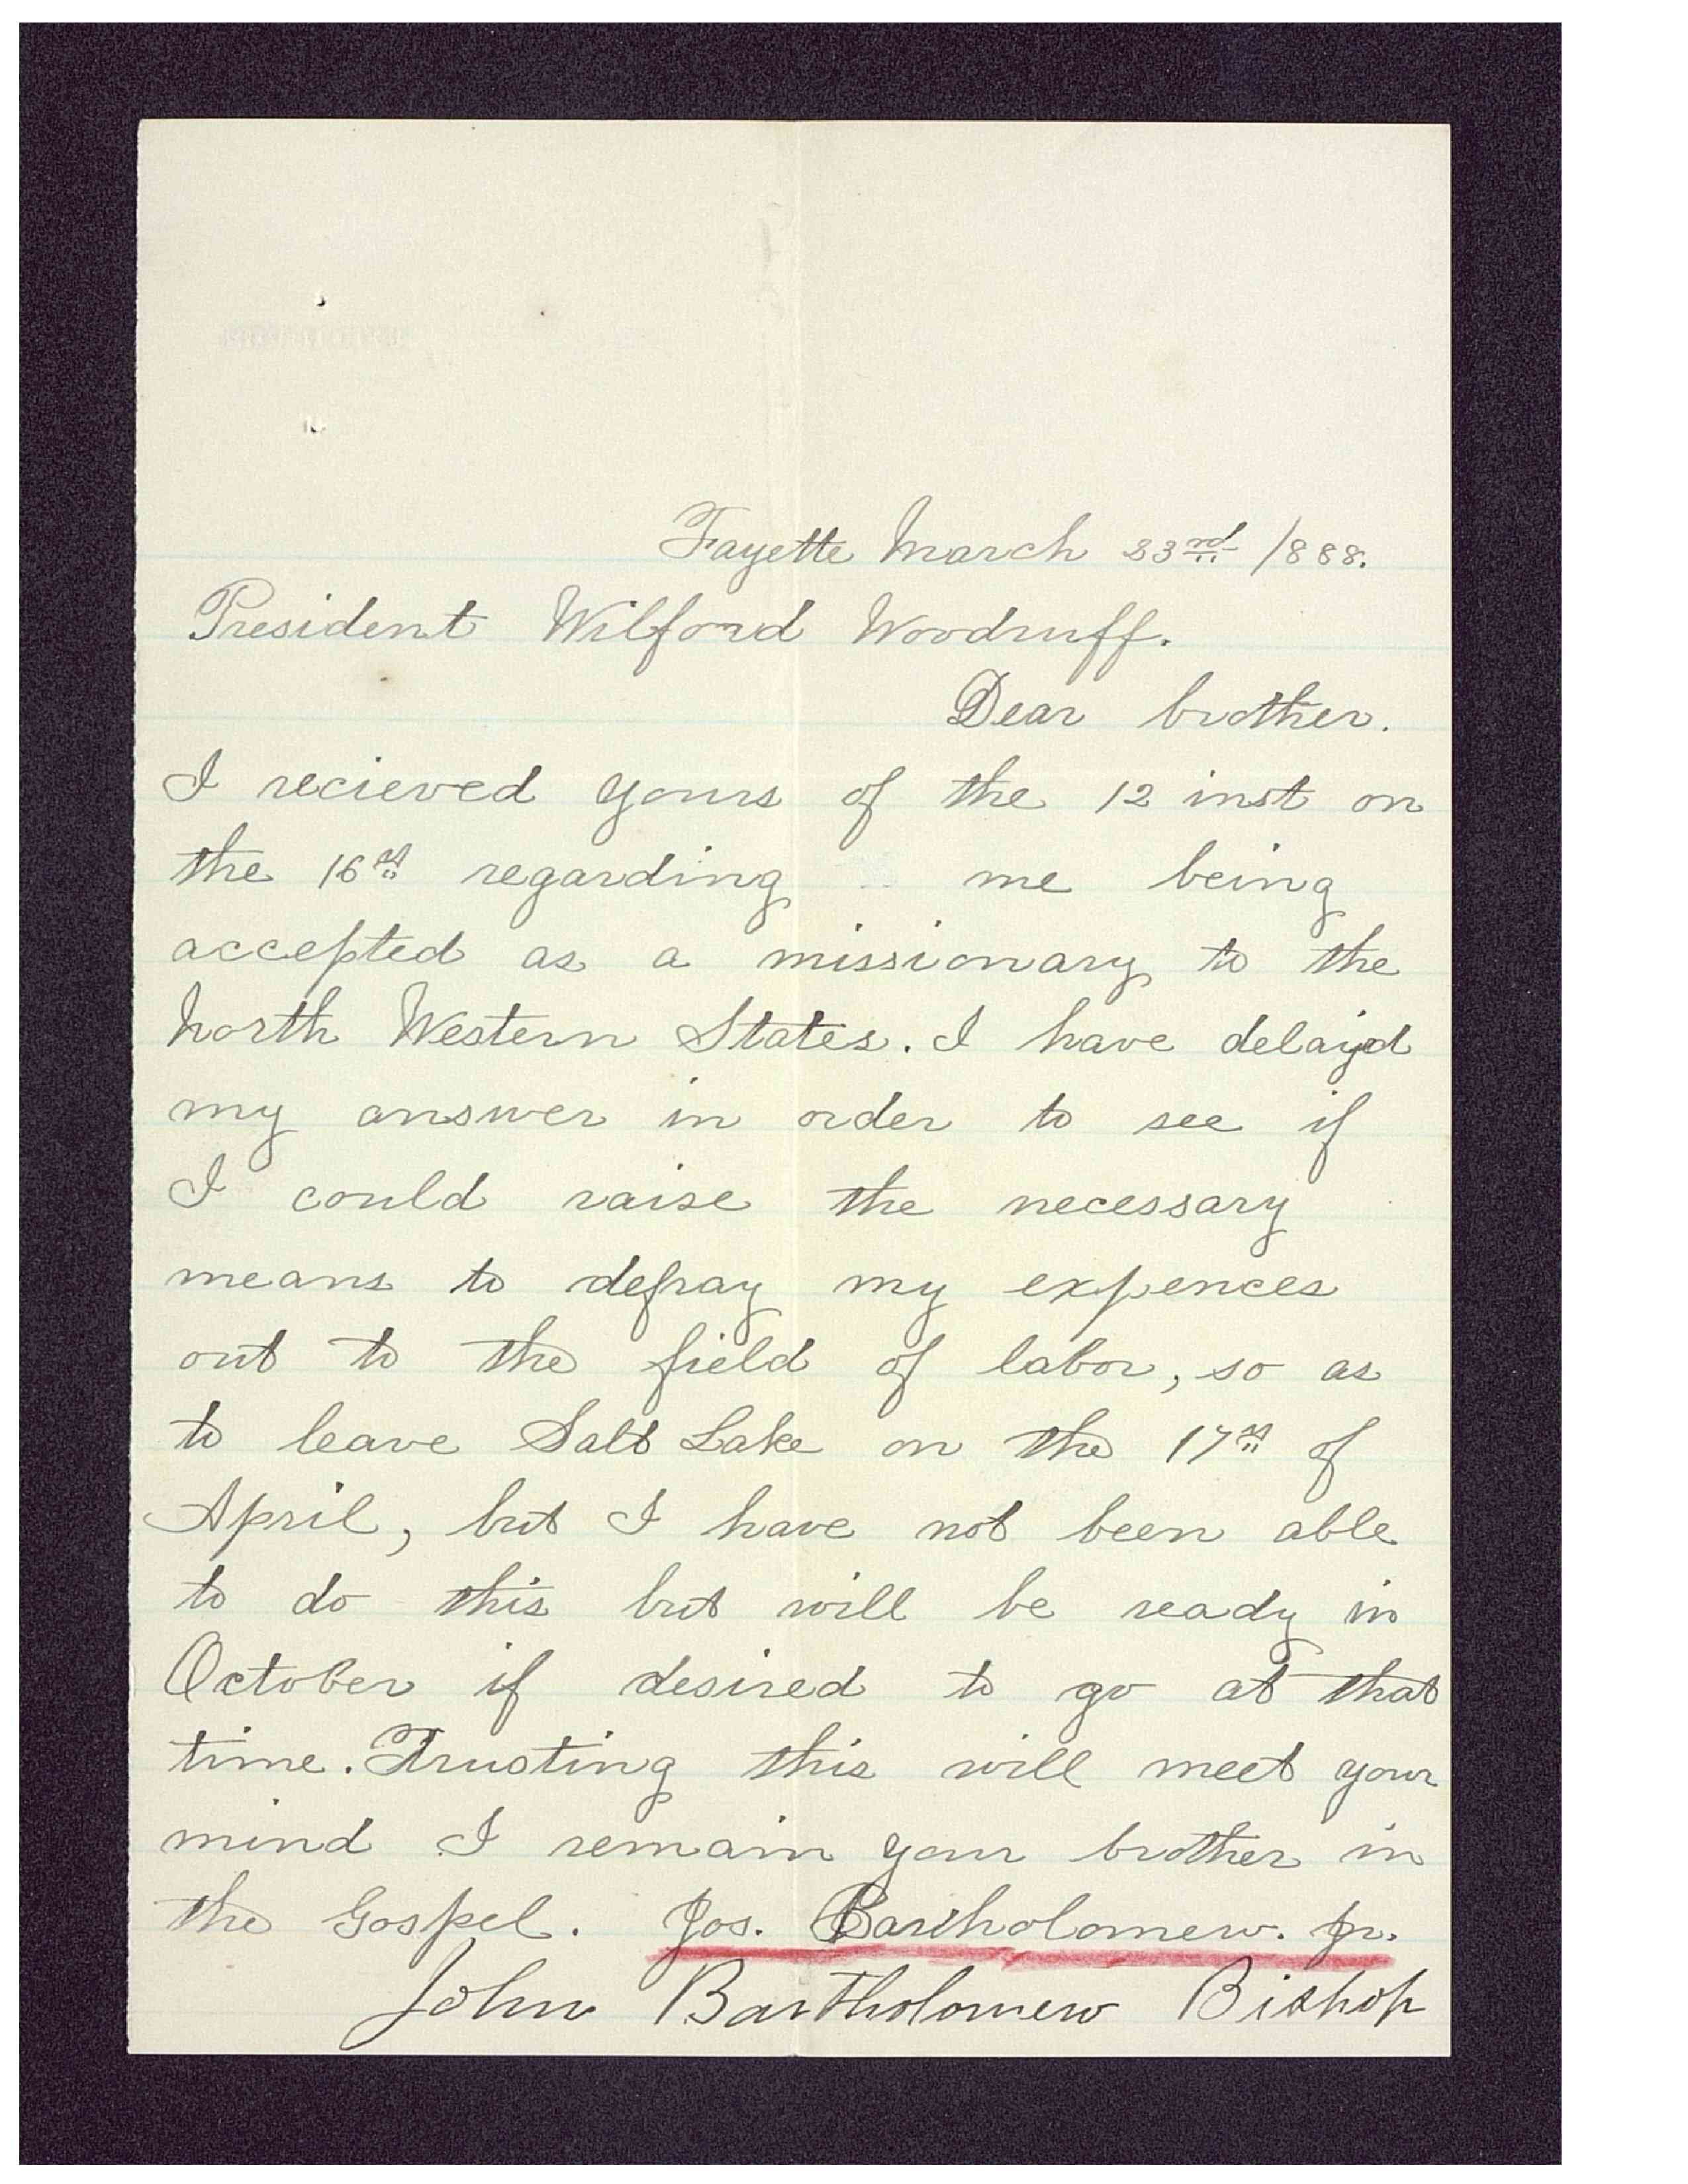 Fayette March 23rd 1888.
President Wilford Woodruff.
Dear brother.
I recieved yours of the 12 inst on
the 16th regarding me being
accepted as a missionary to the
North Western States. I have delayd
my answer in order to see if
I could raise the necessary
means to defray my expences
out to the field of labor, so as
to leave Salt Lake on the 17th of
April, but I have not been able
to do this but will be ready in
October if desired to go at that
time. Trusting this will meet your
mind I remain your brother in
the Gospel. Jos. Bartholomew. Jr.
John Bartholomew Bishop